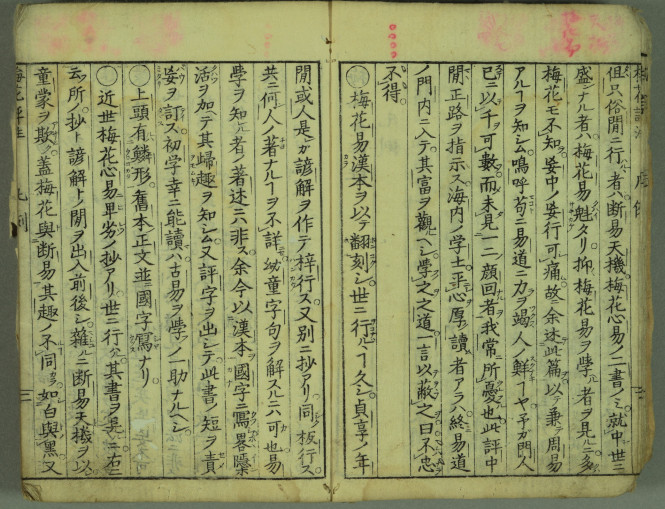 但只俗間ニ行ハル者ハ断易天機梅花心易ノ二書ノミ就中世ニ
盛ナル者ハ梅花易魁タリ抑梅花易ヲ學ル者ヲ見ルニ多ハ
梅花モ不知ラ妄中ノ妄行可痛故ニ余述此篇以テ乗テ周易
アルヿヲ知シム嗚呼苟ニ易道ニ力ヲ竭人ノ鮮ヿヤ予カ門人
已ニ以千ヲ可數而未見一二顔回者我常ニ所憂也此評中
開正路ヲ指示ス海内ノ学士平心厚讀者アラハ終易道
ノ門内ニ入テ其富ヲ觀ヘシ學之之道一言以蔽之曰不忠
不得
梅花易漢本ヲ以テ翻刻シ世ニ行ルヿ久シ貞享ノ年
間或人是カ諺解ヲ作テ梓行ス又別ニ抄アリ同ク板行ス
共ニ何人ノ著ナルヿヲ不詳幼童字句ヲ解スルニハ可也易
學ヲ知ル者ノ著述ニハ非ス余今以漢本國字ニ寫畧檃
活ヲ加ヘテ其歸趣ヲ知シム又評字ヲ出シテ此書ノ短ヲ責
妄ヲ訂ス初学幸ニ能讀ハ古易ヲ學フノ一助ナルヘシ
上頭有鱗形舊本正文並ニ國字寫ナリ
近世梅花心易卑劣抄アリ世ニ行ハル其書ヲ見ルニ右ニ
云フ所ノ抄ト諺解トノ間ヲ出入前後シ雜ルニ断易天機ヲ以
童蒙ヲ欺ク蓋梅花與断易其趣ノ不同コト如白與黑又